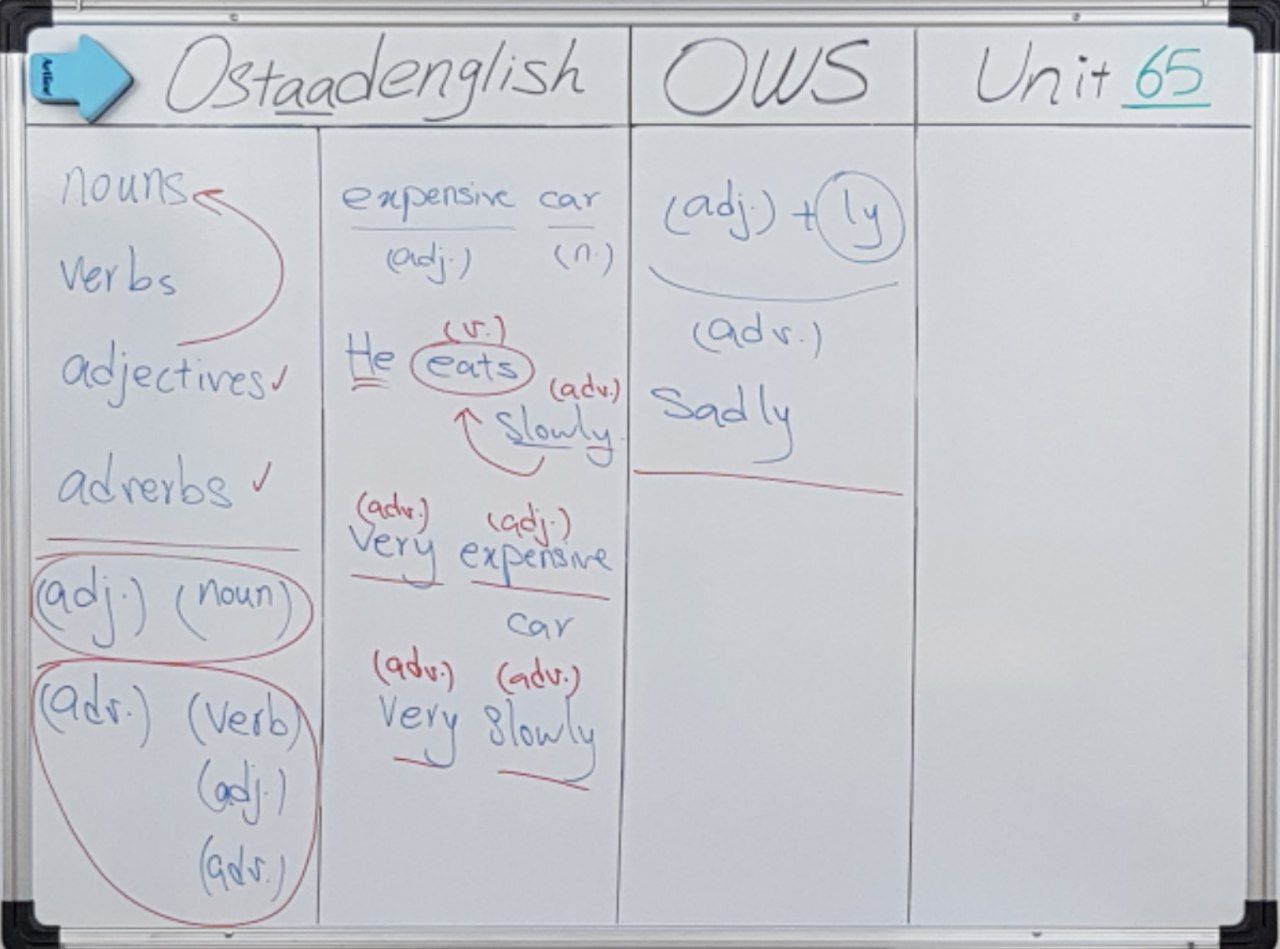 Ostaadenglish OWS Unit 65
nouns
verbs
adjectives ✓
adverbs ✓
(adj.) (noun)
(adv.) (verb)
(adj.)
(adv.)
expensive car
(adj.) (n.)
(v.)
He eats
(adv.)
Slowly.
(adv.) (adj.)
Very expensive
car
(adv.) (adv.)
Very Slowly
(adj.) + ly
(adv.)
Sadly